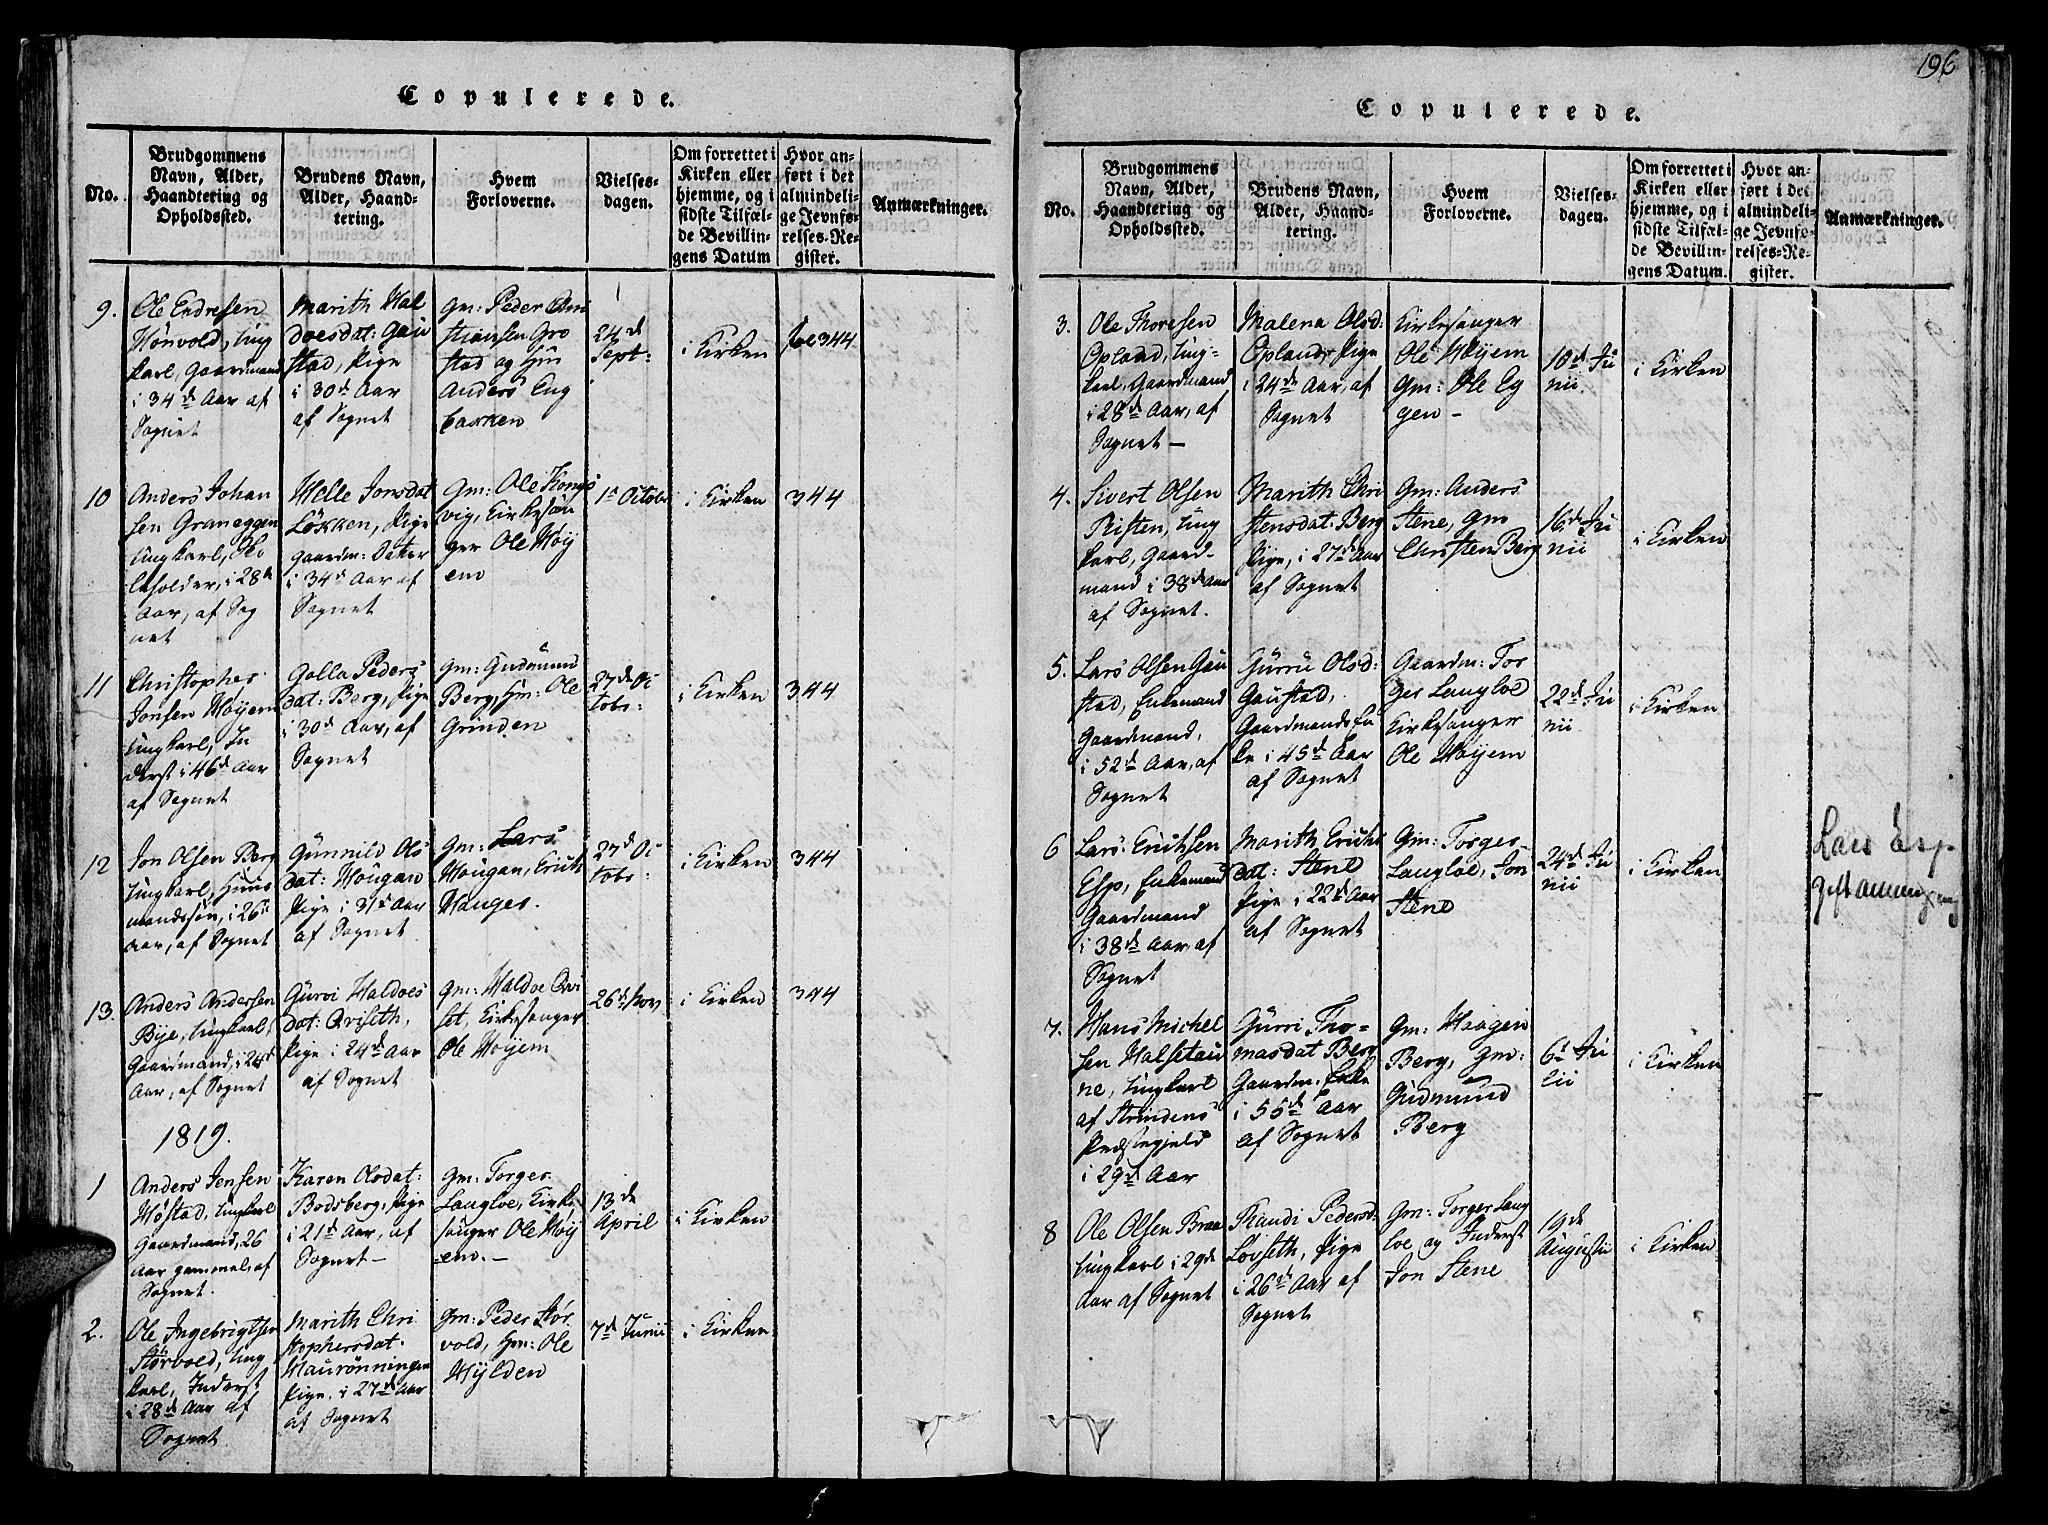 Copulerede.
No.
Brudgommens
Navn, Alder,
Haandtering og
Opholdssted.
Brudens Navn,
Alder, Haand-
tering.
Hvem
Forloverne.
Vielses-
dagen.
Om forrettet i
Kirken eller
hjemme, og i
sidste Tilfæl-
de Bevillin-
gens Datum
Hvor an-
ført i det
almindeli-
ge Jevnfø-
relses-Re-
gister.
Anmærkninger.
9.
Ole Endresen
Hönvold, Ung
karl, Gaardmand
i 34de Aar af
Sognet
Marith Hal
doesdat: Gau
stad, Pige
i 30de Aar
af Sognet
Gm: Peder Chri
stiansen Gro
stad og Hus
Anders Eng
bakken
24de
Sept:
i Kirken
344
10
Anders Johan
sen Graneggen
Ungkarl,
i 28de
Aar, af Sog
net
Helle Jonsdat
Lökken, Pige
Gaardm: Dotter
i 34de Aar af
Sognet
Gm: Ole Kongs
vig, Kirkesan
ger Ole Höÿ
em
1te Octobr
i Kirken
344
11
Christopher
Jonsen Höÿem
Ungkarl, In
derst i 46de Aar
af Sognet
Golla Peders
dat: Berg, Pige
i 30de Aar, af
Sognet
Gm: Gudmund
Berg, Hm: Ole
Grinden
27de Oc
tobr:
i Kirken
344
12
Jon Olsen Berg
Ungkarl, Huus
mandssön, i 26de
Aar, af Sognet
Gunnild Ols
dat: Hougan
Pige i 31de Aar
af Sognet
Gm: Lars
Hougan, Erich
Hauger.
27de Oc
tobr:
i Kirken
344
13.
Anders Andersen
Bye, Ungkarl,
Gaardmand, i 24de
Aar, af Sognet
Guroi Haldoes
dat: Qviseth,
Pige i 24de Aar
af Sognet
Gm: Haldoe Qvi
set, Kirkesanger
Ole Höÿem
26de Nov
i Kirken
344
1819.
1
Anders Jensen
Höstad, Ungkarl
Gaardmand, 26
Aar gammel, af
Sognet.
Karen Olsdat:
Bodsberg, Pige
i 21de Aar, af
Sognet –
Gm: Torger
Langloe, Kirke
sanger Ole Höÿ
em. –
13de
April
i Kirken
2.
Ole Ingebrigtsen
Störvold, Ung
karl, Inderst
i 28de Aar af
Sognet
Marith Chri
stophersdat.
Haurönningen
Pige, i 27de Aar
af Sognet
Gm: Peder Stör
vold, Hm: Ole
Hylden
7de Junii
i Kirken
196
Copulerede.
No.
Brudgommens
Navn, Alder,
Haandtering og
Opholdssted.
Brudens Navn,
Alder, Haand-
tering.
Hvem
Forloverne.
Vielses-
dagen.
Om forrettet i
Kirken eller
hjemme, og i
sidste Tilfæl-
de Bevillin-
gens Datum.
Hvor an-
ført i det
almindeli-
ge Jevnfø-
relses-Re-
gister.
Anmærkninger.
3.
Ole Thoresen
Opland, Ung-
karl, Gaardmand
i 28de Aar, af
Sognet –
Malena Olsd:
Opland, Pige
i 24de Aar, af
Sognet
Kirkesanger
Ole Höÿem
Gm: Ole Eg
gen –
10de Ju
nii
i Kirken
4.
Sivert Olsen
Risten, Ung
karl, Gaard-
mand i 38de Aar
af Sognet.
Marith Chri
stensdat: Berg
Pige, i 27de Aar
af Sognet
Gm: Anders
Stene, Gm
Christen Berg
16de Ju
nii
i Kirken
5.
Lars Olsen Gau
stad, Enkemand
Gaardmand,
i 52de Aar, af
Sognet
Gurru Olsd:
Gaustad,
Gaardmands En
ke i 45de Aar
af Sognet
Gaardm: Tor
ger Langloe
Kirkesanger
Ole Höÿem
22de Ju
nii
i Kirken
6
Lars Erichsen
Esp, Enkemand
Gaardmand
i 38de Aar, af
Sognet
Marith Erichs
dat: Stene
Pige i 22de Aar
af Sognet
Gm: Torger
Langloe, Jon
Stene
24de Ju
nii
i Kirken
Lars Esp
7.
Hans Michel
sen Halsetau
ne, Ungkarl
af Strindens
Præstegjeld
i 29de Aar
Gurri Tho-
masdat Berg
Gaardm: Enke
i 55de Aar
af Sognet
Gm: Haagen
Berg, Gm:
Gudmund
Berg
6te Ju
lii
i Kirken
8
Ole Olsen Braa
Ungkarl i 29de
Aar af Sognet
Randi Pedersd:
Lovseth, Pige
i 26de Aar af
Sognet
Gm: Torger Lang
loe og Inderst
Jon Stene
19de
Augustii
i Kirken